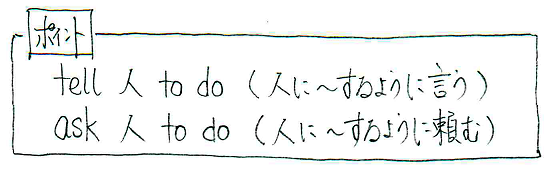 ポイント
tell 人 to do (人に～するように言う)
ask 人 to do (人に～するように頼む)